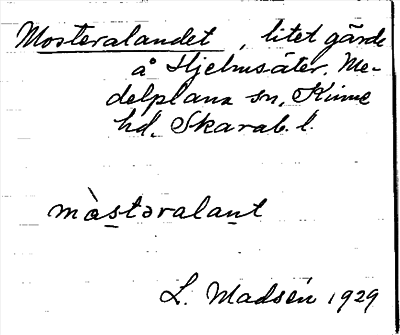 Mosteralandet, litet gärde
å Hjelmsäter. Me-
delplana sn, Kinne
hd. Skarab. l.
màstəralant
L. Madsén 1929